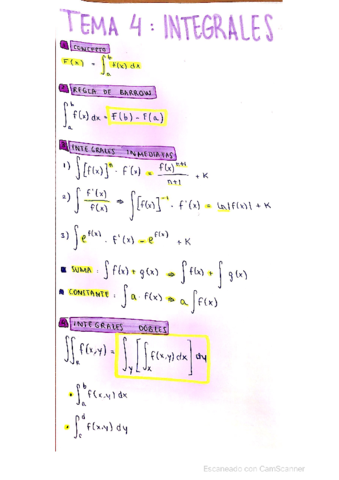 TEMA 4: INTEGRALES
1 CONCEPTO
F(x) = ∫_a^b f(x) dx
2 REGLA DE BARROW
∫_a^b f(x) dx = F(b) - F(a)
3 INTEGRALES INMEDIATAS
1) ∫ [f(x)]^n · f'(x) = f(x)^{n+1} / n+1 + K
2) ∫ f'(x) / f(x) ⇒ ∫ [f(x)]^{-1} · f'(x) = ln|f(x)| + K
3) ∫ e^{f(x)} · f'(x) = e^{f(x)} + K
SUMA: ∫ f(x) + g(x) ⇒ ∫ f(x) + ∫ g(x)
CONSTANTE: ∫ a · f(x) ⇒ a ∫ f(x)
4 INTEGRALES DOBLES
∬_R f(x,y) = ∫_y [ ∫_x f(x,y) dx ] dy
• ∫_a^b f(x,y) dx
• ∫_c^d f(x,y) dy
Escaneado con CamScanner